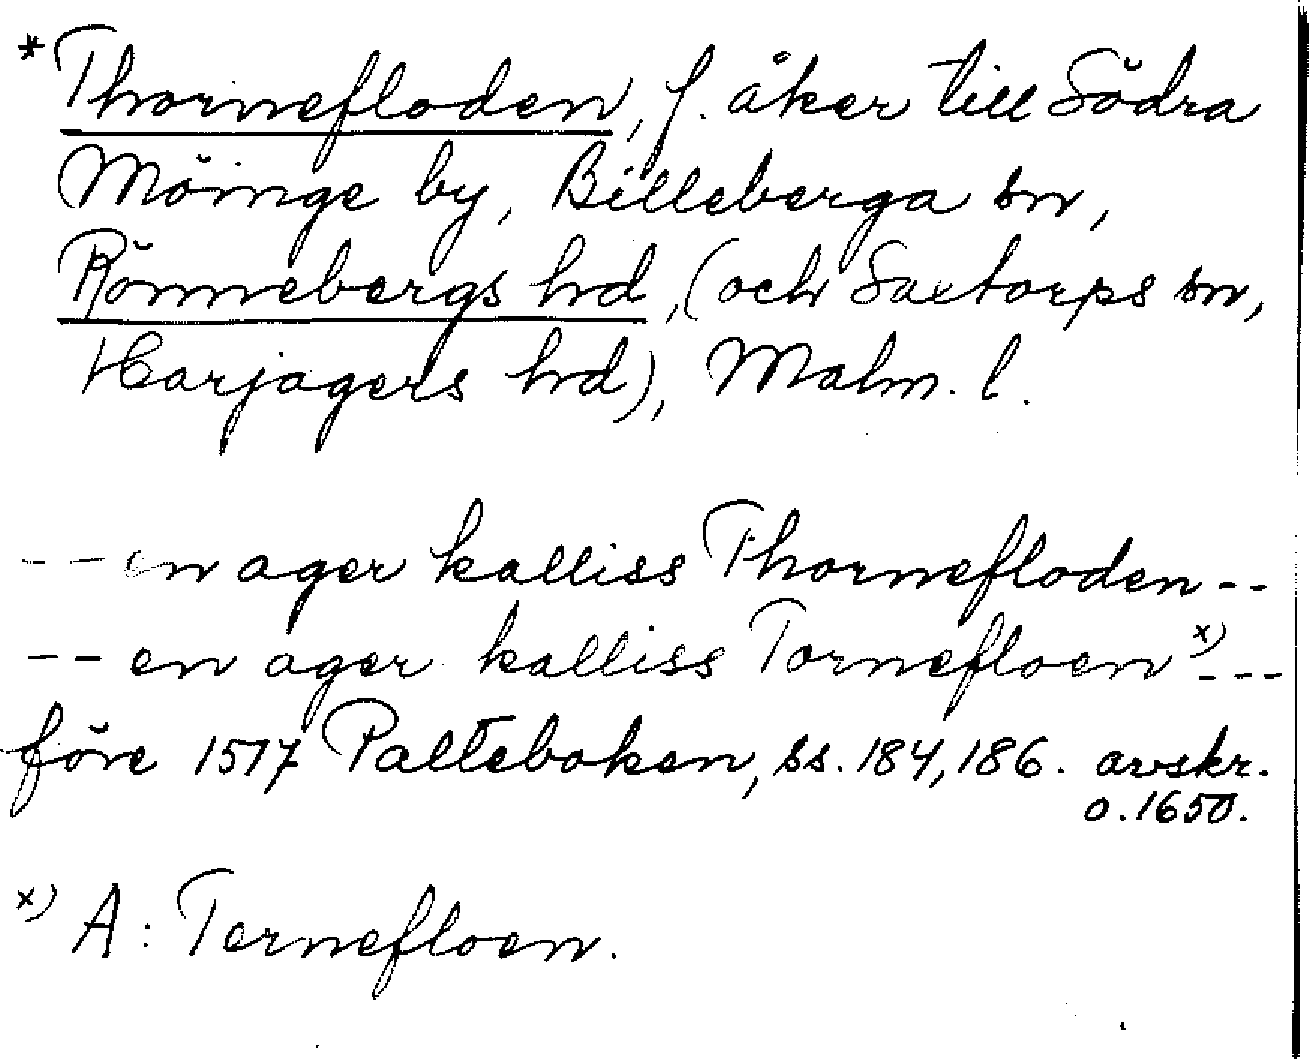 * Thornefloden, f. åker till Södra
Möinge by, Billeberga sn,
Rönnebergs hd, (och Saxtorps sn,
Harjagers hd), Malm. l.
-- en ager kalliss Thornefloden --
-- en ager kalliss Tornefloen x) ---
före 1517 Palteboken, ss. 184, 186. avskr.
o. 1650.
x) A: Ternefloen.